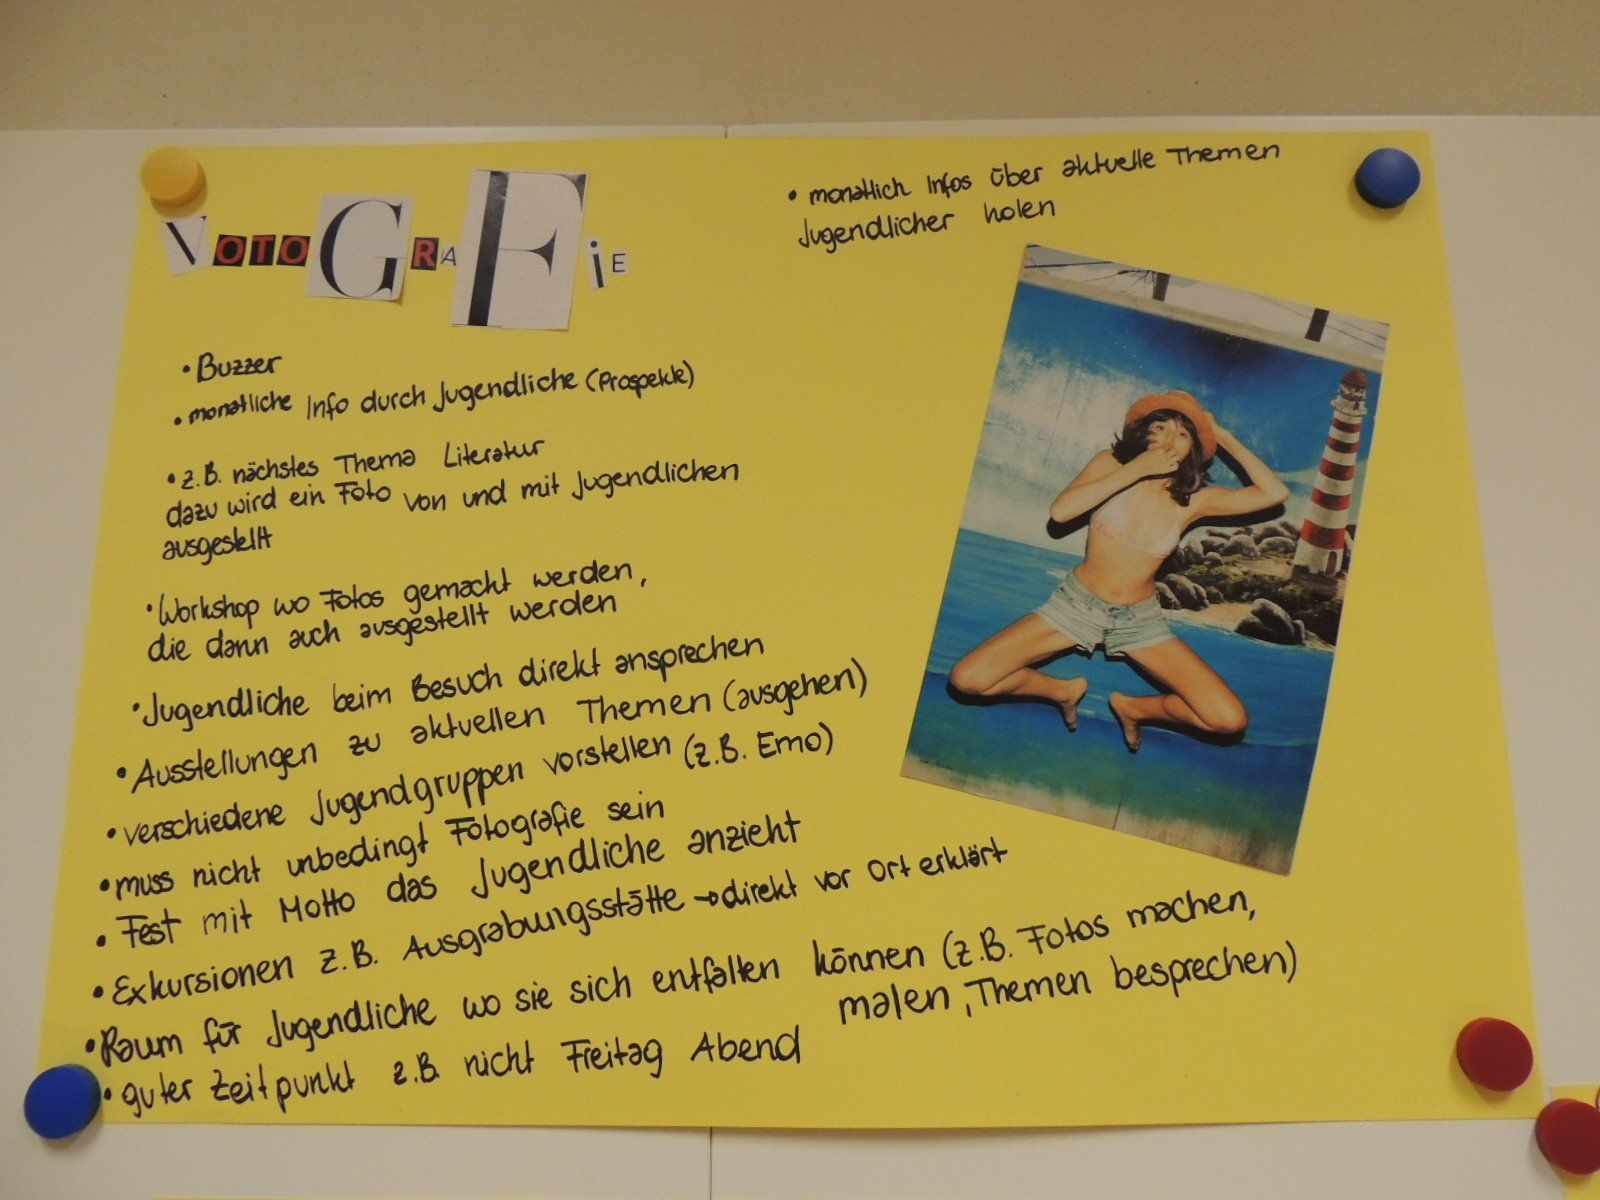 VOTOGRAFiE
• monatlich Infos über aktuelle Themen
Jugendlicher holen
• Buzzer
• monatliche Info durch Jugendliche (Prospekte)
• z.B. nächstes Thema Literatur
dazu wird ein Foto von und mit Jugendlichen
ausgestellt
• Workshop wo Fotos gemacht werden,
die dann auch ausgestellt werden
• Jugendliche beim Besuch direkt ansprechen
• Ausstellungen zu aktuellen Themen (ausgehen)
• verschiedene Jugendgruppen vorstellen (z.B. Emo)
• muss nicht unbedingt Fotografie sein
• Fest mit Motto das Jugendliche anzieht
• Exkursionen z.B. Ausgrabungsstätte → direkt vor Ort erklärt
• Raum für Jugendliche wo sie sich entfalten können (z.B. Fotos machen,
malen, Themen besprechen)
• guter Zeitpunkt z.B. nicht Freitag Abend